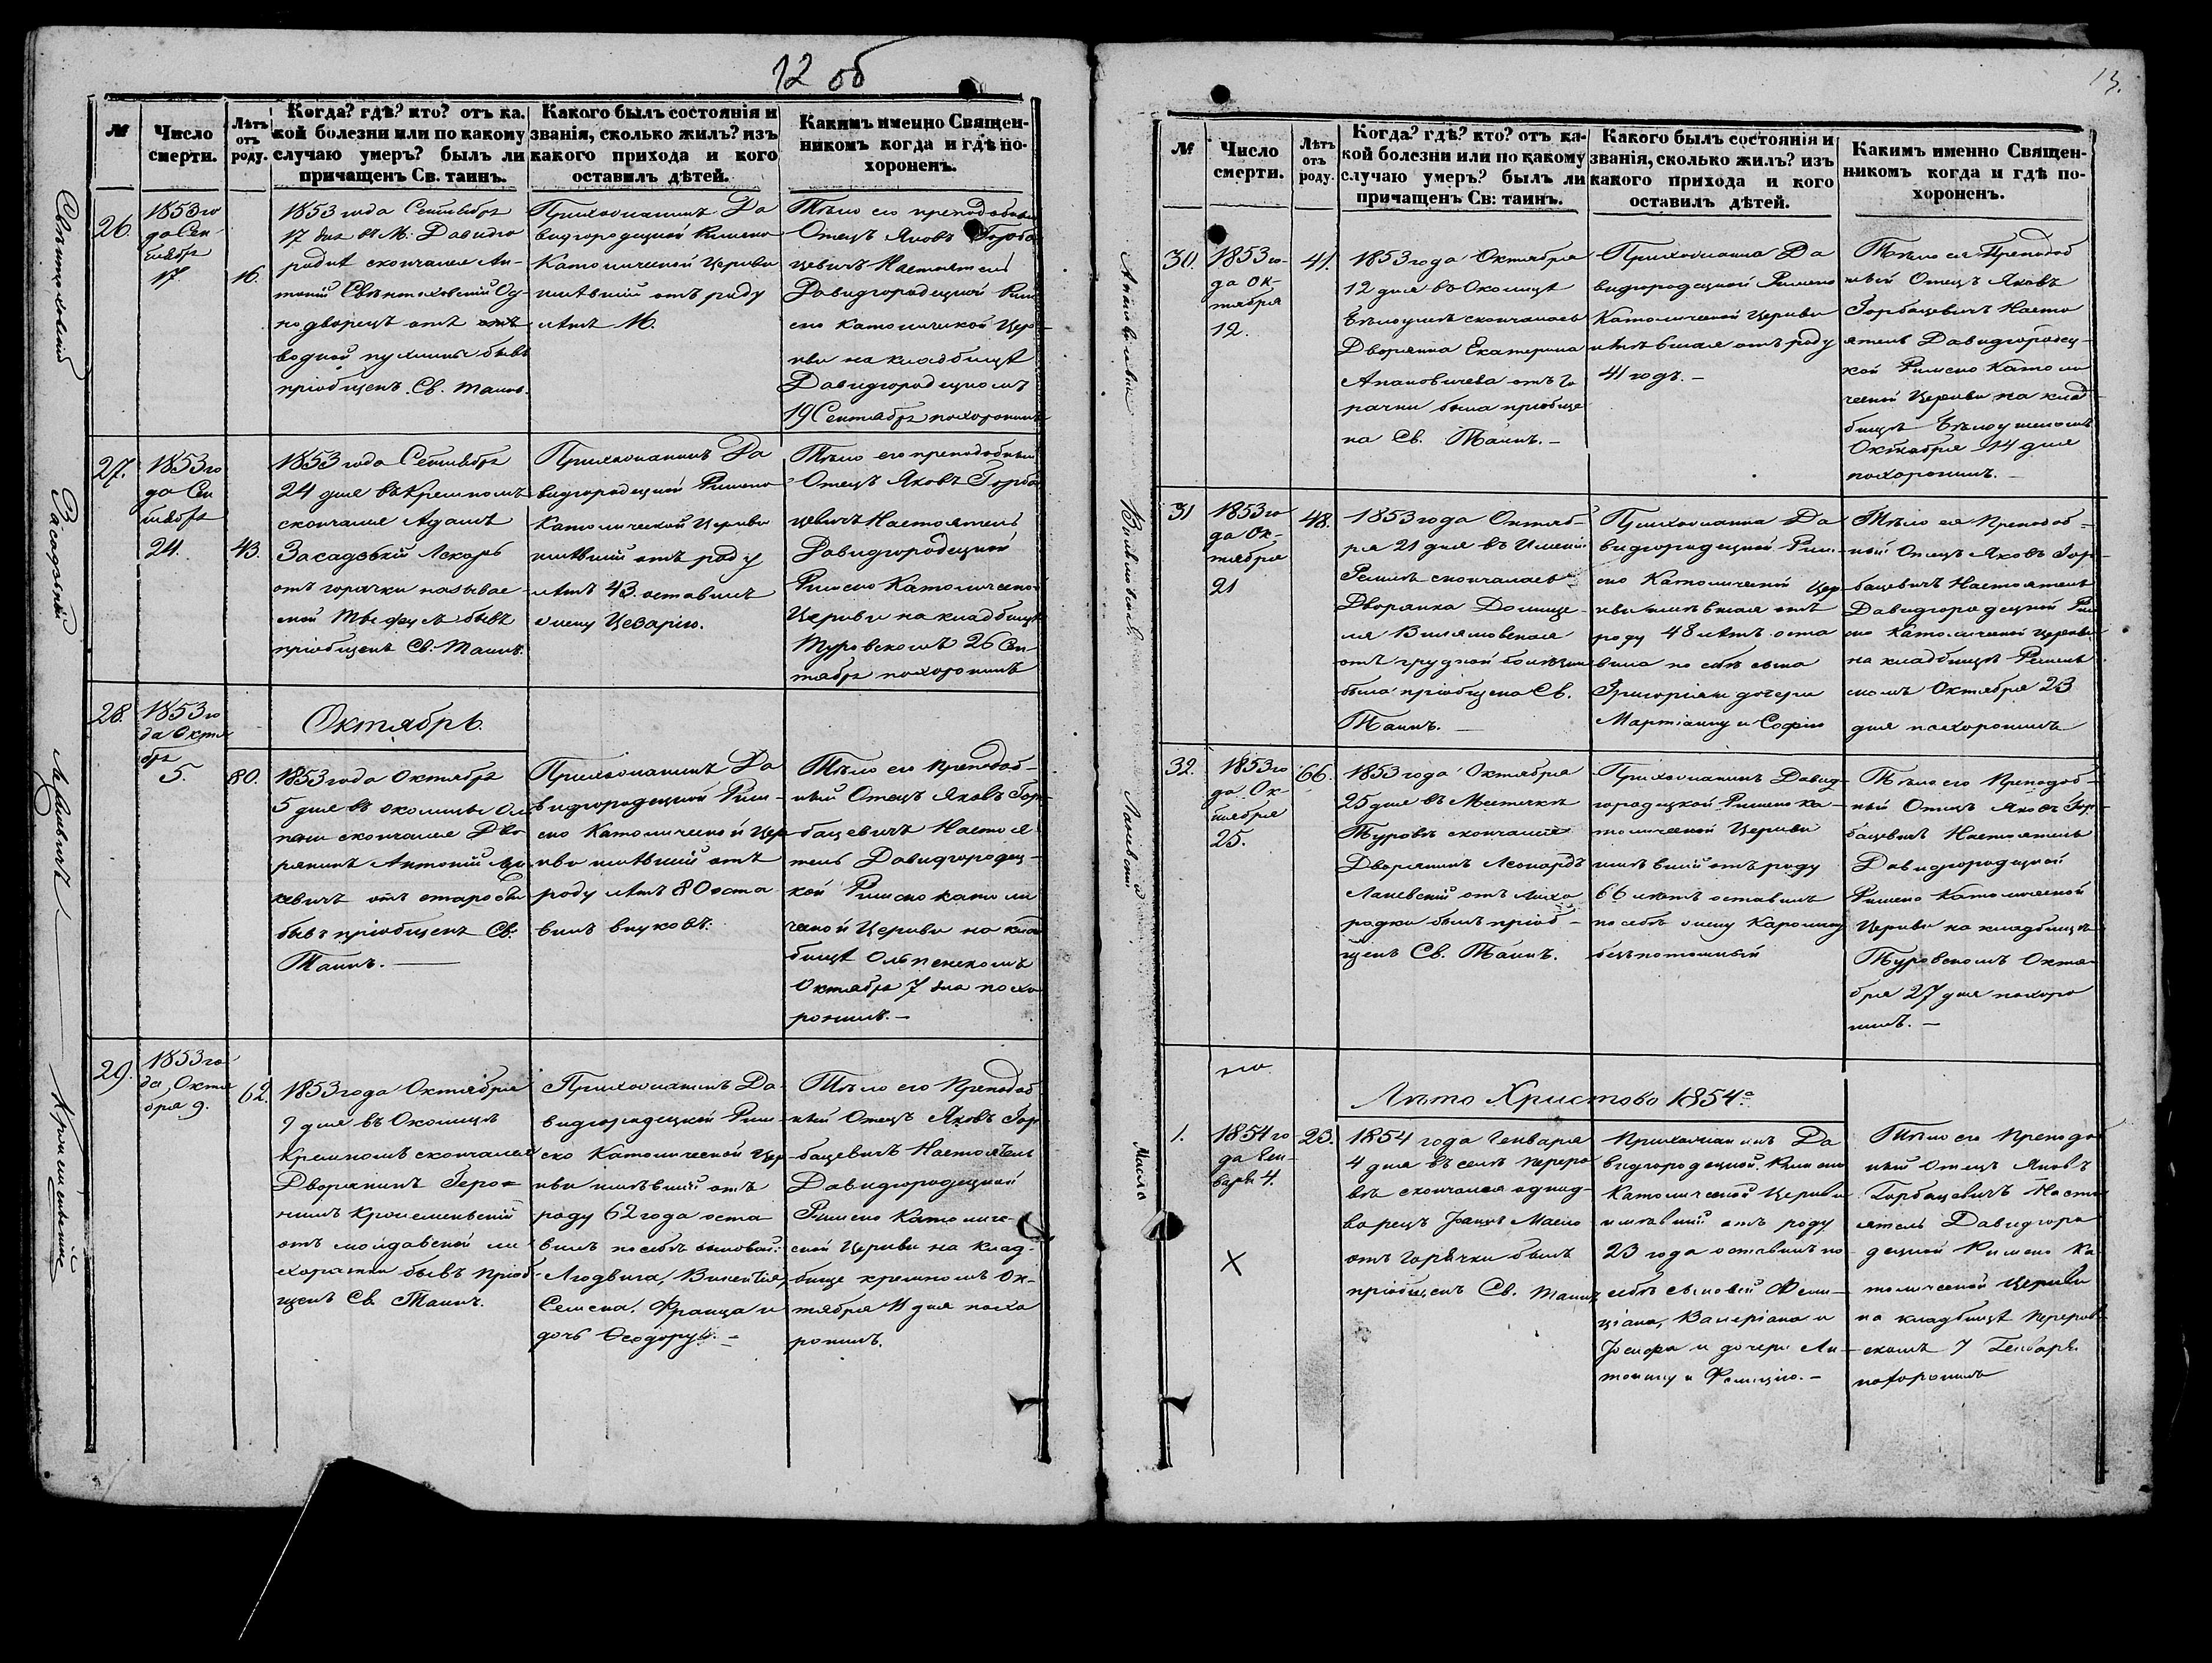 12 об
№
Число
смерти.
Лѣтъ
отъ
роду.
Когда? гдѣ? кто? отъ ка-
кой болезни или по какому
случаю умеръ? былъ ли
причащенъ Св. таинъ.
Какого былъ состоянія и
званія, сколько жилъ? изъ
какого прихода и кого
оставилъ дѣтей.
Какимъ именно Священ-
никомъ когда и гдѣ по-
хороненъ.
26.
1853 го
да Сен
тября
17.
16.
1853 года Сентября
17 дня въ М: Давидго
родкѣ скончался Ан-
тоній Свентоховскій Од-
нодворецъ отъ
водной пухлины бывъ
пріобщенъ Св. таинъ.
Прихожанинъ Да
видгородецкой Римско
Католической Церкви
имѣвшій отъ роду
лѣтъ 16.
Тѣло его преподобный
Отецъ Яковъ Горба
цевичъ Настоятель
Давидгородецкой Рим
ско Католической Цер
кви на кладбищѣ
Давидгородецкомъ
19 Сентября похоронилъ
Свентоховскій
27.
1853 го
да Сен
тября
24.
43.
1853 года Сентября
24 дня въ Кремномъ
скончался Адамъ
Засадзкій Лекарь
отъ горячки называе
мой бывъ
пріобщенъ Св. Таинъ.
Прихожанинъ Да
видгородецкой Римско
Католической Церкви
имѣвшій отъ роду
лѣтъ 43. оставилъ
жену Цезарію.
Тѣло его преподобный
Отецъ Яковъ Горба
цевичъ Настоятель
Давидгородецкой
Римско Католической
Церкви на кладбищѣ
Туровскомъ 26 Сен-
тября похоронилъ
Засадзкій
28.
1853 го
да Октя
бря
5.
80.
Октябрь.
1853 года Октября
5 дня въ околицѣ Оль
пени скончался Дво
рянинъ Антоній
отъ старости
бывъ пріобщенъ Св.
Таинъ.
Прихожанинъ Да
видгородецкой Рим-
ско Католической Цер
кви имѣвшій отъ
роду лѣтъ 80 оста
вилъ внуковъ.
Тѣло его Преподоб-
ный Отецъ Яковъ Гор
бацевичъ Настоя
тель Давидгородец-
кой Римско католи
ческой Церкви на клад
бищѣ Ольпенскомъ
Октября 7 дня похо
ронилъ. —
29.
1853 го
да, Октя
бря 9.
62.
1853 года Октября
9 дня въ Околицѣ
Кремномъ скончался
Дворянинъ Геро-
нимъ Кремпенскій
отъ молдавской ли
хорадки бывъ пріоб-
щенъ Св. Таинъ.
Прихожанинъ Да-
видгородецкой Рим-
ско Католической Цер
кви имѣвшій отъ
роду 62 года оста
вилъ по себѣ сыновей:
Людвига, Викентія,
Семена, Франца и
дочь Феодору. —
Тѣло его Преподоб
ный Отецъ Яковъ Гор
бацевичъ Настоятель
Давидгородецкой
Римско Католиче-
ской Церкви на клад-
бище кремномъ Ок-
тября 11 дня похо
ронилъ.
13.
№
Число
смерти.
Лѣтъ
отъ
роду.
Когда? гдѣ? кто? отъ ка-
кой болезни или по какому
случаю умеръ? былъ ли
причащенъ Св: таинъ.
Какого былъ состоянія и
званія, сколько жилъ? изъ
какого прихода и кого
оставилъ дѣтей.
Какимъ именно Священ-
никомъ когда и гдѣ по-
хороненъ.
30.
1853 го-
да Ок-
тября
12.
41.
1853 года Октября
12 дня въ Околицѣ
скончалась
Дворянка Екатерина
Апановичева отъ го
рячки была пріобще
на Св. Таинъ. —
Прихожанка Да
видгородецкой Римско
Католической Церкви
имѣвшая отъ роду
41 годъ. —
Тѣло ея Преподоб
ный Отецъ Яковъ
Горбацевичъ Насто
ятель Давидгородец-
кой Римско Католи
ческой Церкви на клад
бищѣ
Октября 14 дня
похоронилъ. —
31
1853 го
да Ок-
тября
21
48.
1853 года Октяб-
ря 21 дня въ Имѣніи
скончалась
Дворянка Доміце-
ля
отъ грудной болезни
была пріобщена Св.
Таинъ. —
Прихожанка Да
видгородецкой Рим-
ско Католической Цер
кви имѣвшая отъ
роду 48 лѣтъ оста
вила по себѣ сына
Григорія и дочери
Марціанну и Софію
Тѣло ея Преподоб-
ный Отецъ Яковъ Гор-
бацевичъ Настоятель
Давидгородецкой Рим
ско Католической церкви
на кладбищѣ
Октября 23
дня похоронилъ
32.
1853 го
да Ок
тября
25.
66.
1853 года Октября
25 дня въ Мѣстечкѣ
Туровѣ скончался
Дворянинъ Леонардъ
Ланевскій отъ лихо
радки былъ пріоб-
щенъ Св. Таинъ.
Прихожанинъ Давид-
городецкой Римско ка-
толической Церкви
имѣвшій отъ роду
66 лѣтъ оставилъ
по себѣ жену Каролину
безпотомный
Тѣло его Преподоб-
ный Отецъ Яковъ Гор-
бацевичъ Настоятель
Давидгородецкой
Римско Католической
Церкви на кладбищѣ
Туровскомъ Октя-
бря 27 дня похоро
нилъ. —
Ланевскій
Лѣто Христово 1854.
1.
1854 го
да Ген-
варя 4.
23.
1854 года Генваря
4 дня въ селѣ Переро
вѣ скончался однод-
ворецъ Іоаннъ Масло
отъ Горячки былъ
пріобщенъ Св. Таинъ
Прихожанинъ Да
видгородецкой Римско
Католической Церкви
имѣвшій отъ роду
23 года оставилъ по
себѣ сыновей Фели-
ціана, Валеріана и
Іосифа и дочери Ан-
тонину и Фелицію. —
Тѣло его Преподо
ный Отецъ Яковъ
Горбацевичъ Насто
ятель Давидгоро
децкой Римско Ка
толической Церкви
на кладбищѣ Переров
скомъ 7 Генваря
похоронилъ
Масло
X